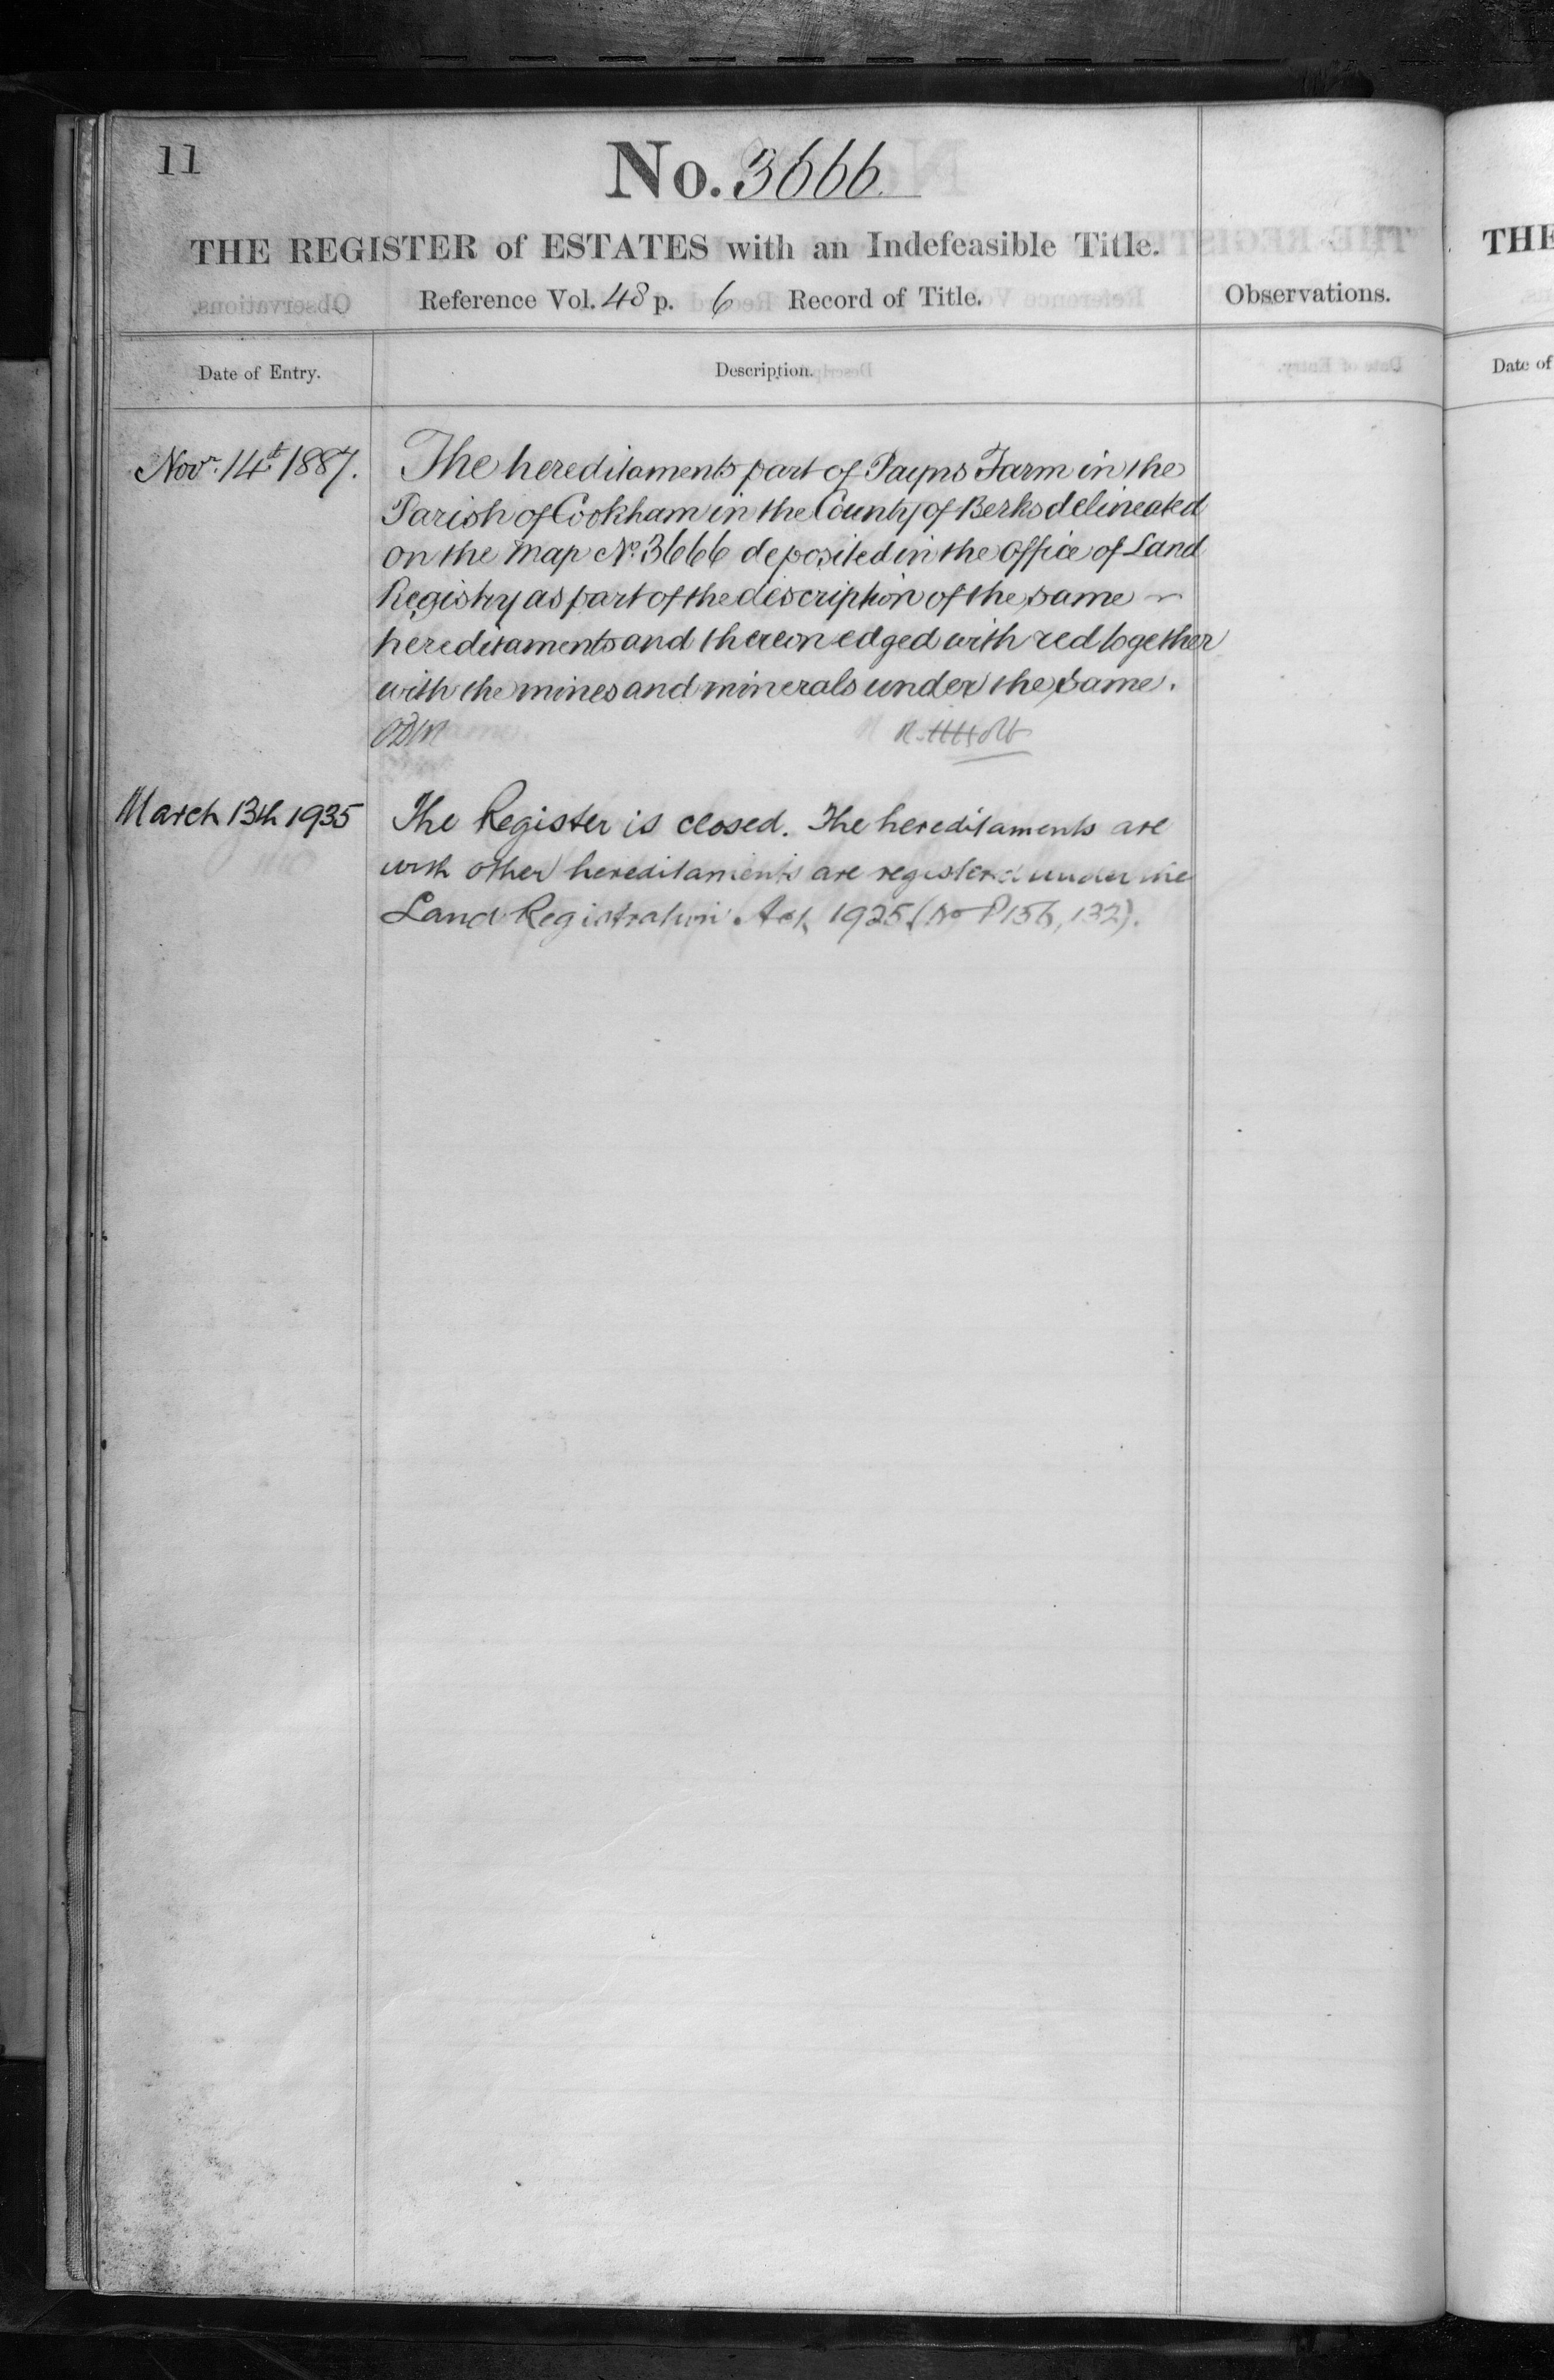 11
No. 3666.
THE REGISTER of ESTATES with an Indefeasible Title.
Reference Vol. 48 p. 6 Record of Title.
Observations.
Date of Entry.
Description.
Novr. 14t 1887.
The hereditaments part of Payns Farm in the
Parish of Cookham in the County of Berks delineated
on the map No. 3666 deposited in the office of Land
Registry as part of the description of the same ~
hereditaments and thereon edged with red together
with the mines and minerals under the same.
March 13th 1935
The Register is closed. The hereditaments are
with other hereditaments are registered under the
Land Registration Act, 1925. (No P156,132).
THE
Date of